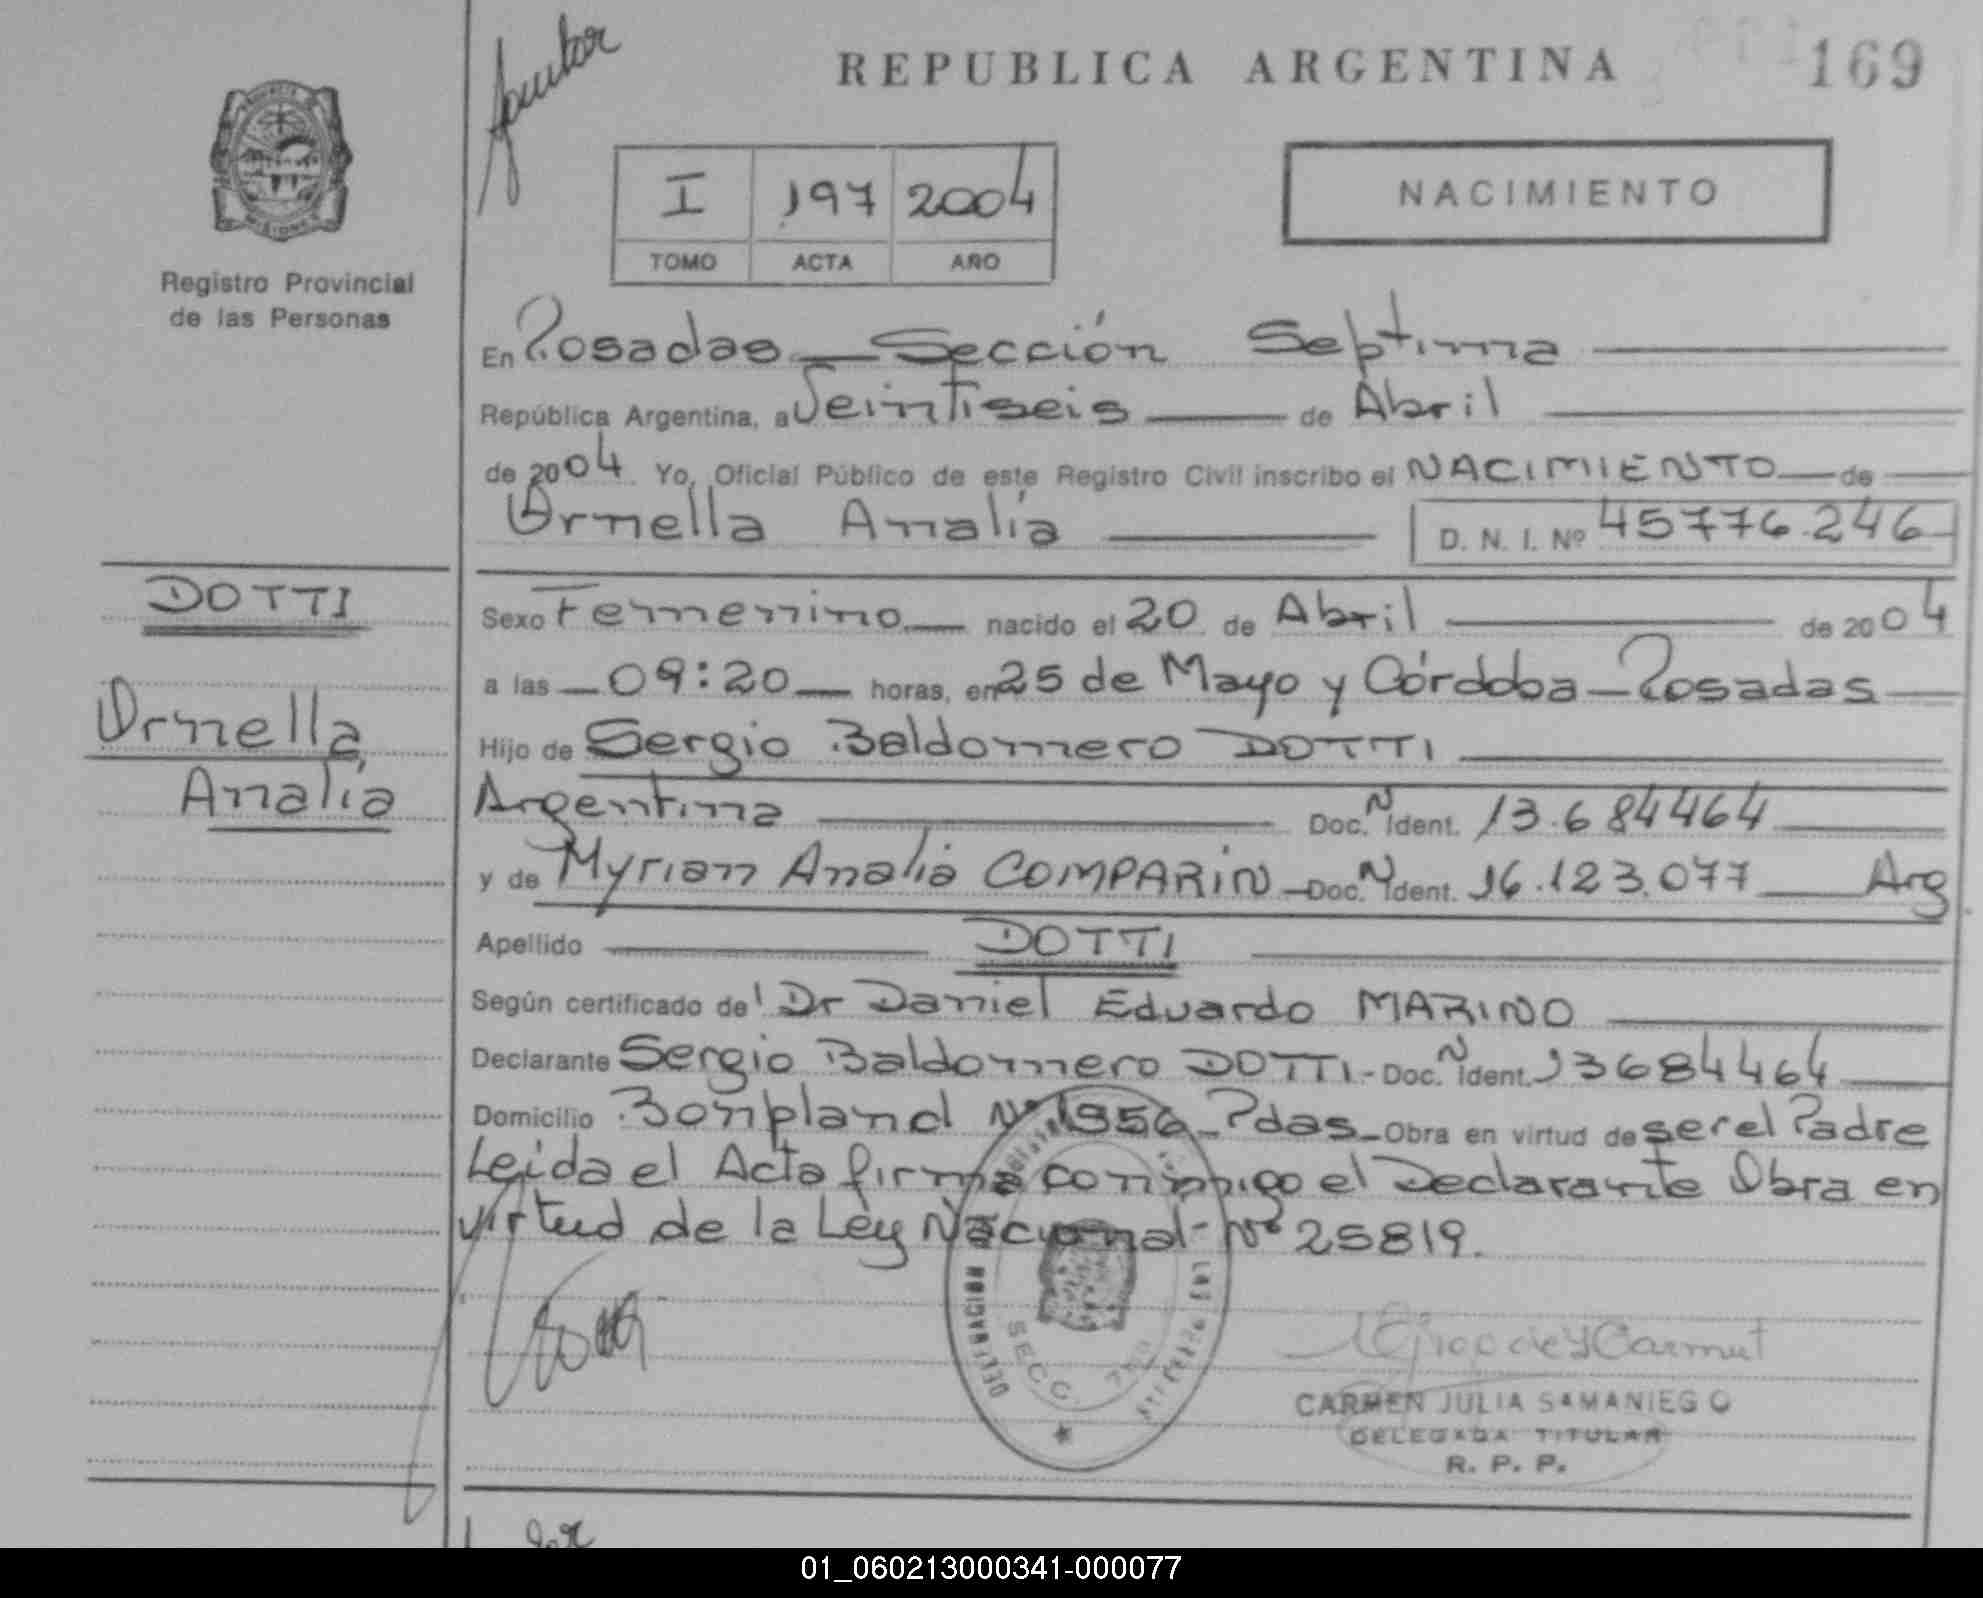 REPUBLICA ARGENTINA 169
I 197 2004
TOMO ACTA AÑO
NACIMIENTO
Registro Provincial
de las Personas
En Posadas — Sección Septima
República Argentina, a Veintiseis de Abril
de 2004 Yo, Oficial Público de este Registro Civil inscribo el NACIMIENTO de
Ornella Analía D. N. I. Nº 45776.246
DOTTI
Ornella
Analía
Sexo Femenino nacido el 20 de Abril de 2004
a las 09:20 horas, en 25 de Mayo y Córdoba — Posadas
Hijo de Sergio Baldomero DOTTI
Argentina Doc. N Ident. 13.684464
y de Myrian Analia COMPARIN Doc. N Ident. 16.123.077 Arg
Apellido DOTTI
Según certificado de Dr Daniel Eduardo MARINO
Declarante Sergio Baldomero DOTTI - Doc. N Ident. 13684464
Domicilio Bonpland Nº 1956 - Pdas - Obra en virtud de ser el Padre
Leida el Acta firma conmigo el Declarante Obra en
virtud de la Ley Nacional Nº 25819.
DELEGACION LAS SECC.
CARMEN JULIA SAMANIEGO
DELEGADA TITULAR
R. P. P.
01_060213000341-000077